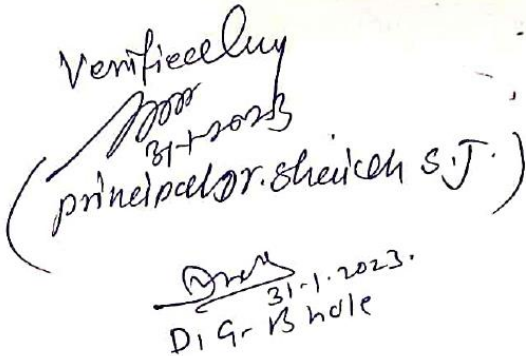 Verified by
31-1-2023
(principal Dr. Sheikh S.J.)
31-1.2023.
D.G. Bhole